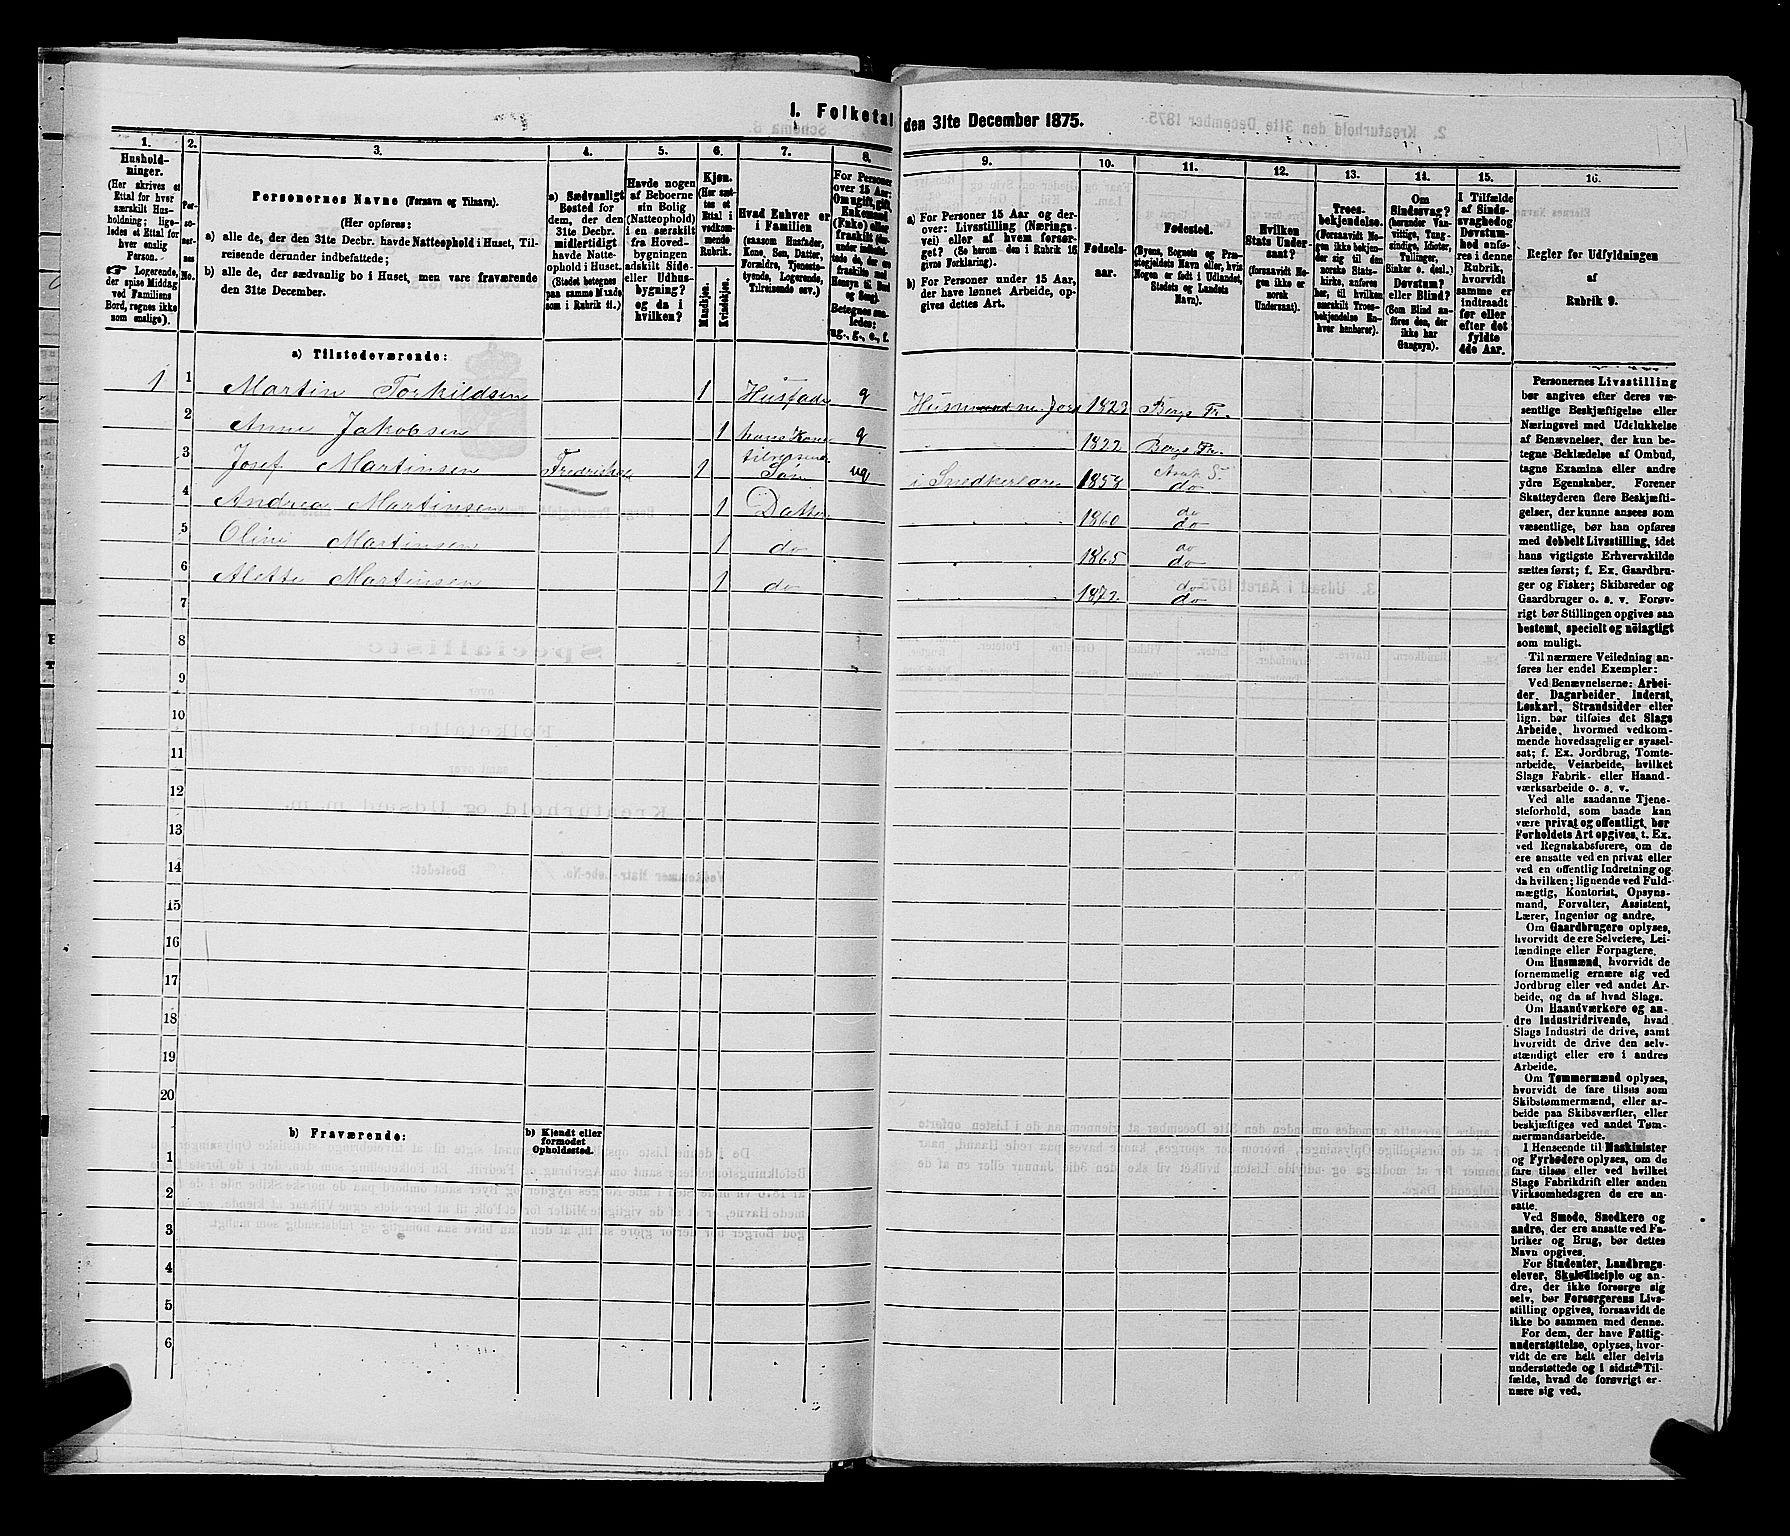 1. Folketal den 31te December 1875.
1.
Hushold-
ninger.
(Her skrives et
Ettal for hver
særskilt Hus-
holdning; lige-
ledes et Ettal for
hver enslig
Person.
Logerende,
der spise Middag
ved Familiens
Bord, regnes ikke
som enslige).
2.
Per-
soner-
nes
No.
3.
Personernes Navne (Fornavn og Tilnavn).
(Her opføres:
a) alle de, der den 31te Decbr. havde Natteophold i Huset, Til-
reisende derunder indbefattede;
b) alle de, der sædvanlig bo i Huset, men vare fraværende
den 31te December.
4.
a) Sædvanligt
Bosted for
dem, der den
31te Decbr.
midlertidigt
havde Natte-
ophold i Huset.
(Stedet betegnes
paa samme Maade
som i Rubrik 11.)
5.
Havde nogen
af Beboerne
sin Bolig
(Natteophold)
i en særskilt
fra Hoved-
bygningen
adskilt Side-
eller Udhus-
bygning?
og da i
hvilken?
6.
Kjøn.
(Her sæt-
tes et
Ettal i
vedkom-
mende
Rubrik.
Mandkjøn.
Kvindekjøn.
7.
Hvad Enhver er
i Familien
(saasom Husfader,
Kone, Søn, Datter,
Forældre, Tjeneste-
tyende, Logerende,
Tilreisende osv.)
8.
For Personer
over 15 Aar:
Om ugift, gift,
Enkemand
(Enke) eller
fraskilt
Betegnes saa-
ledes:
ug., g., e., f.
9.
a) For Personer 15 Aar og der-
over: Livsstilling (Nærings-
vei) eller af hvem forsør-
get? (Se herom den i Rubrik 16
givne Forklaring).
b) For Personer under 15 Aar,
der have lønnet Arbeide, op-
gives dettes Art.
10.
Fødsels-
aar.
11.
Fødested.
(Byens, Sognets og Præ-
stegjeldets Navn eller, hvis
Nogen er født i Udlandet,
Stedets og Landets
Navn).
12.
Hvilken
Stats Under-
saat?
(forsaavidt No-
gen ikke er
norsk
Undersaat).
13.
Troes-
bekjendelse.
(Forsaavidt No-
gen ikke bekjen-
der sig til den
norske Stats-
kirke, anføres
her, til hvilken
særskilt Troes-
bekjendelse En-
hver henhører).
14.
Om
Sindssvag?
(herunder Van-
vittige, Tung-
sindige, Idioter,
Tullinger,
Sinker o. desl.)
Døvstum?
eller Blind?
(Som Blind an-
føres den, der
ikke har
Gangsyn).
15.
I Tilfælde
af Sinds-
svaghed og
Døvstum-
hed anfø-
res i denne
Rubrik,
hvorvidt
samme er
indtraadt
før eller
efter det
fyldte
4de Aar.
16.
Regler for Udfyldningen
af
Rubrik 9.
a) Tilstedeværende:
1 1 Martin Torkildsen 1 Husfader g Husmand m. Jord 1823 Borge Pr.
2 Anne Jakobsen 1 hans Kone g 1822 Borge Pr.
3 Josef Martinsen Fredrikshald 1 tilreisende Søn ug i Snedkerlære 1858 do
4 Andrea Martinsen 1 Datter 1860 do do
5 Oline Martinsen 1 do 1865 do do
6 Alette Martinsen 1 do 1872. do do
7
8
9
10
11
12
13
14
15
16
17
18
19
20
b) Fraværende:
b) Kjendt eller
formodet
Opholdssted.
1
2
3
4
5
6
Personernes Livsstilling
bør angives efter deres væ-
sentlige Beskjæftigelse eller
Næringsvei med Udelukkelse
af Benævnelser, der kun be-
tegne Beklædelse af Ombud,
tagne Examina eller andre
ydre Egenskaber. Forener
Skatteyderen flere Beskjæfti-
gelser, der kunne ansees som
væsentlige, bør han opføres
med dobbelt Livsstilling, idet
hans vigtigste Erhvervskilde
sættes først; f. Ex. Gaardbru-
ger og Fisker; Skibsreder og
Gaardbruger o. s. v. Forøv-
rigt bør Stillingen opgives saa
bestemt, specielt og nøiagtigt
som muligt.
Til nærmere Veiledning an-
føres her endel Exempler:
Ved Benævnelserne: Arbei-
der, Dagarbeider, Inderst,
Løskarl, Strandsidder eller
lign. bør tilføies det Slags
Arbeide, hvormed vedkom-
mende hovedsagelig er syssel-
sat; f. Ex. Jordbrug, Tomte-
arbeide, Veiarbeide, hvilket
Slags Fabrik- eller Haand-
værksarbeide o. s. v.
Ved alle saadanne Tjene-
steforhold, som baade kan
være privat og offentligt, bør
Forholdets Art opgives, t. Ex.
ved Regnskabsførere, om de
ere ansatte ved en privat eller
ved en offentlig Indretning og
da hvilken; lignende ved Fuld-
mægtig, Kontorist, Opsyns-
mand, Forvalter, Assistent,
Lærer, Ingeniør og andre.
Om Gaardbrugere oplyses,
hvorvidt de ere Selveiere, Lei-
lændinge eller Forpagtere.
Om Husmænd, hvorvidt de
fornemmelig ernære sig ved
Jordbrug eller ved andet Ar-
beide, og da af hvad Slags.
Om Haandværkere og an-
dre Industridrivende, hvad
Slags Industri de drive, samt
hvorvidt de drive den selv-
stændigt eller ere i andres
Arbeide.
Om Tømmermænd oplyses,
hvorvidt de fare tilsøs som
Skibstømmermænd, eller ar-
beide paa Skibsværfter, eller
beskjæftiges ved andet Tøm-
mermandsarbeide.
I Henseende til Maskinister
og Fyrbødere oplyses, om de
fare tilsøs eller ved hvilket
Slags Fabrikdrift eller anden
Virksomhedsgren de ere an-
satte.
Ved Smede, Snedkere og
andre, der ere ansatte ved Fa-
briker og Brug, bør dettes
Navn opgives.
For Studenter, Landbrugs-
elever, Skoledisciple og an-
dre, der ikke forsørge sig
selv, bør Forsørgerens Livs-
stilling opgives, forsaavidt de
ikke bo sammen med denne.
For dem, der have Fattig-
understøttelse, oplyses, hvor-
vidt de ere helt eller delvis
understøttede og i sidste Til-
fælde, hvad de forøvrigt er-
nære sig ved.